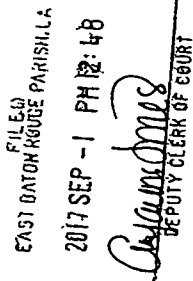 FILED
EAST BATON ROUGE PARISH, LA
2017 SEP -1 PM 12:48
DEPUTY CLERK OF COURT